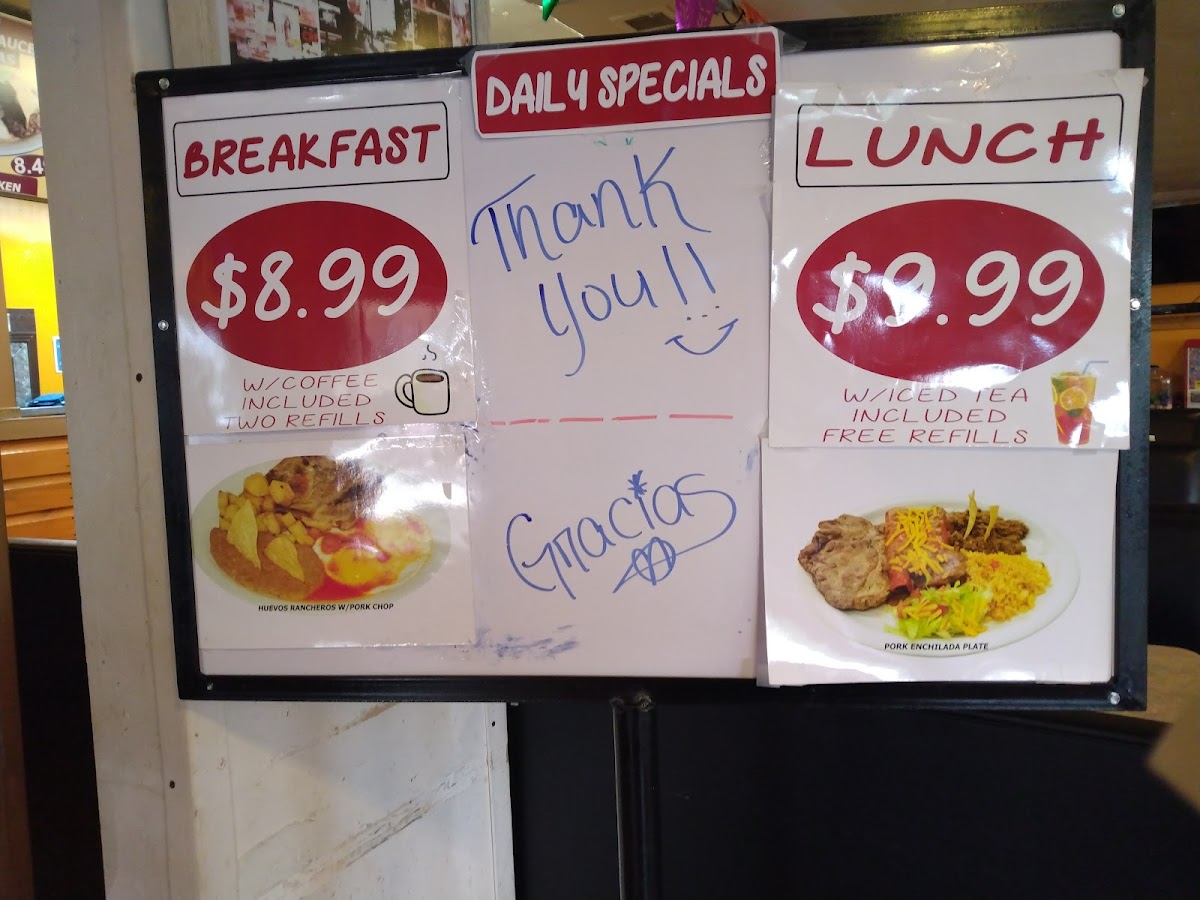 DAILY SPECIALS
BREAKFAST
$8.99
W/COFFEE
INCLUDED
TWO REFILLS
HUEVOS RANCHEROS W/PORK CHOP
Thank
You!!
Gracias
LUNCH
$9.99
W/ICED TEA
INCLUDED
FREE REFILLS
PORK ENCHILADA PLATE